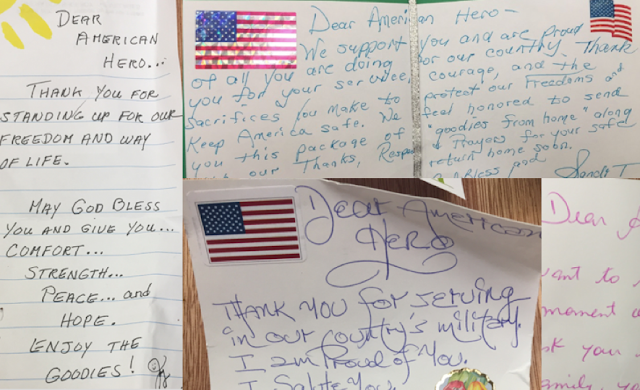 DEAR
AMERICAN
HERO...
THANK YOU FOR
STANDING UP FOR OUR
FREEDOM AND WAY
OF LIFE.
MAY GOD BLESS
YOU AND GIVE YOU...
COMFORT...
STRENGTH...
PEACE... and
HOPE.
ENJOY THE
GOODIES!
Dear American Hero-
We support you and are proud
of all you are doing for our country. Thank
you for your service, courage, and the
sacrifices you make to protect our Freedoms &
Keep America safe. We feel honored to send
you this package of "goodies from home" along
our Thanks, Respect & Prayers for your safe
return home soon.
Bless and
Sandi T
Dear American
HERO
THANK YOU for serving
in our country's military.
I am Proud of You.
I Salute You.
Dear
to
moment
you